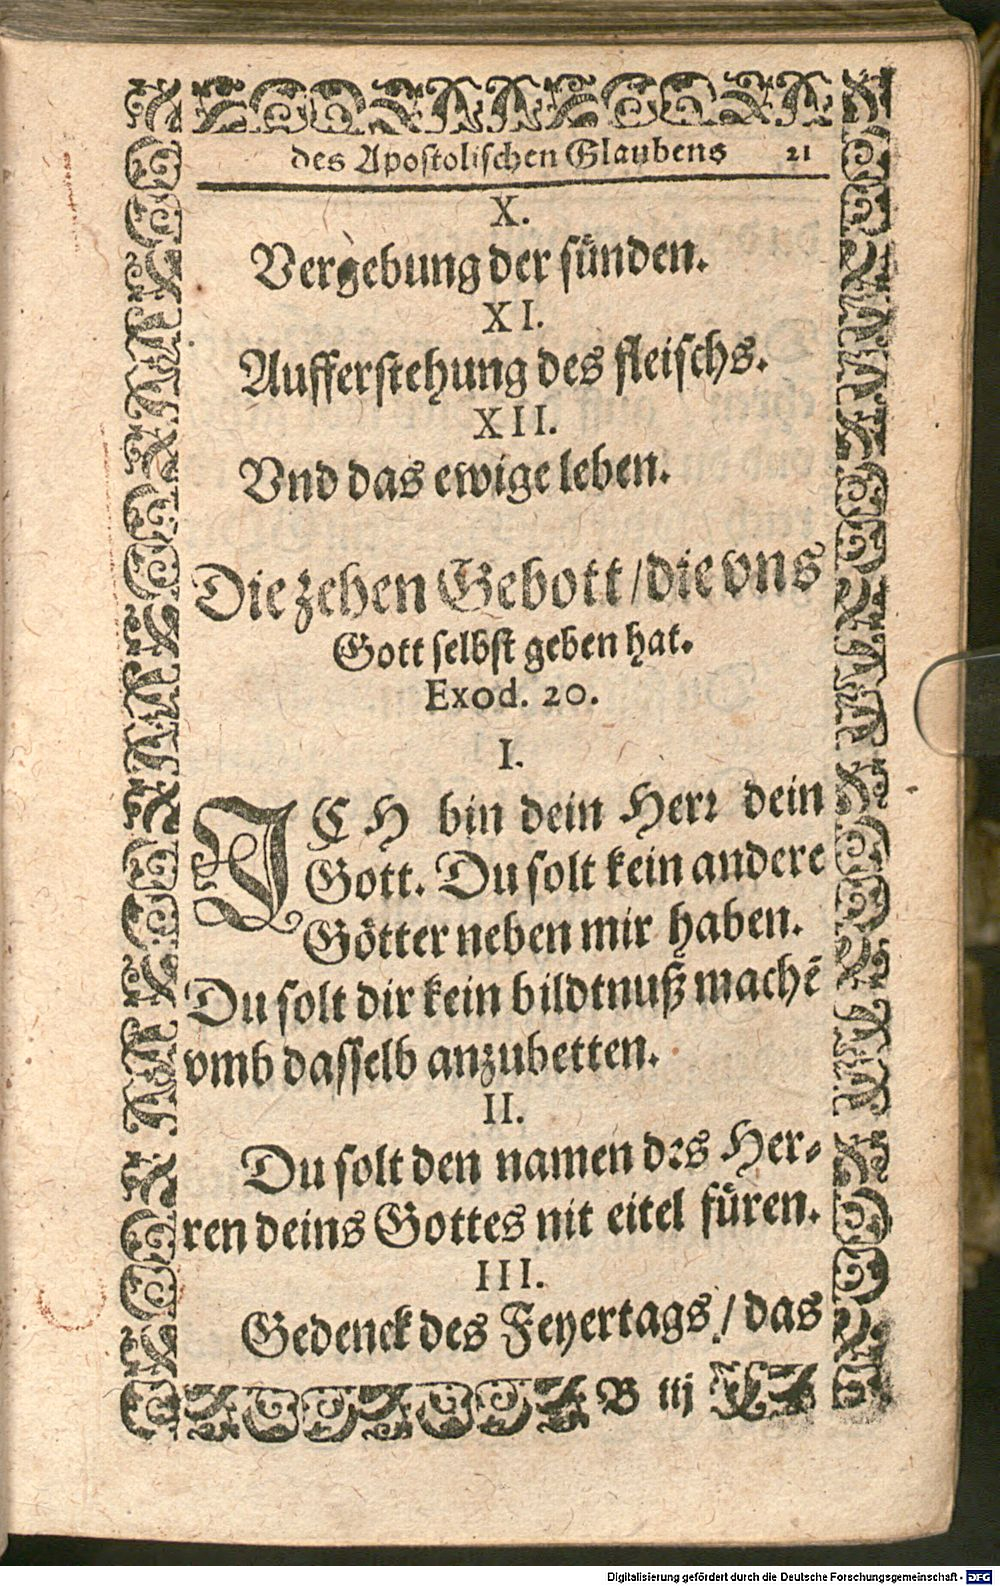 des Apostolischen Glaubens 21
X.
Vergebung der sünden.
XI.
Aufferstehung des fleischs.
XII.
Vnd das ewige leben.
Die zehen Gebott / die vns
Gott selbst geben hat.
Exod. 20.
I.
ICH bin dein Herꝛ dein
Gott. Du solt kein andere
Götter neben mir haben.
Du solt dir kein bildtnuß machẽ
vmb dasselb anzubetten.
II.
Du solt den namen dꝛs Her-
ren deins Gottes nit eitel füren.
III.
Gedenck des Feyertags / das
B iij
Digitalisierung gefördert durch die Deutsche Forschungsgemeinschaft - DFG